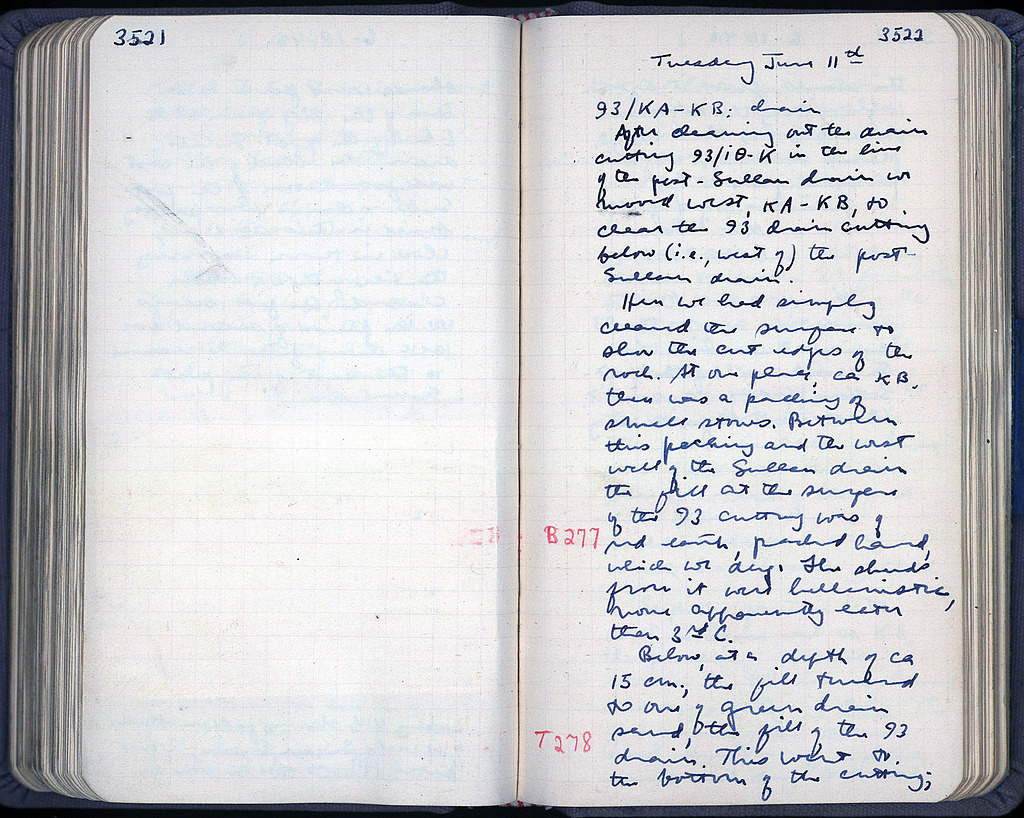 3521
3522
Tuesday June 11th
93/KA-KB: drain
After cleaning out the drain
cutting 93/ΙΘ-K in the line
of the post-Sullan drain we
moved west, KA-KB, to
clear the 93 drain cutting
below (i.e., west of) the post-
Sullan drain.
Here we had simply
cleaned the surface to
show the cut edges of the
rock. At one place, ca KB,
there was a packing of
small stones. Between
this packing and the west
wall of the Sullan drain
the fill at the surface
of the 93 cutting was of
B277
red earth, packed hard,
which we dug. The sherds
from it were hellenistic,
none apparently later
than 3rd C.
Below, at a depth of ca
15 cm., the fill turned
to one of green drain
T278
sand, the fill of the 93
drain. This went to
the bottom of the cutting;